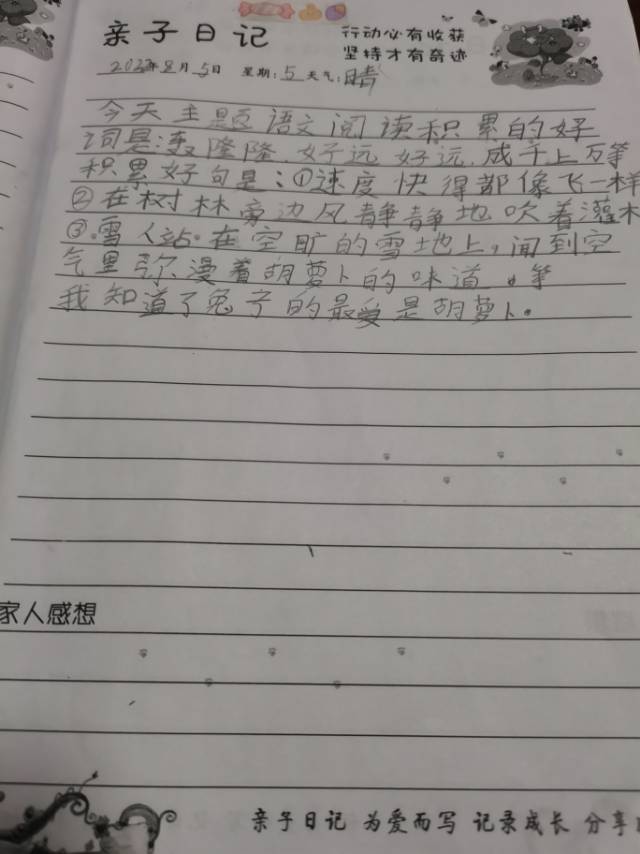 亲子日记
行动必有收获
坚持才有奇迹
2022年8月5日 星期:5 天气:晴
今天主题语文阅读积累的好
词是:轰隆隆、好远好远、成千上万等
积累好句是:①速度快得都像飞一样
②在树林旁边风静静地吹着灌木
③.雪人站在空旷的雪地上,闻到空
气里弥漫着胡萝卜的味道。等
我知道了兔子的最爱是胡萝卜.
家人感想
亲子日记 为爱而写 记录成长 分享